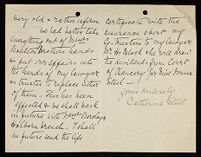 very old & rather infirm
we had better take
everything out of Mess.rs
Brothers hands
& put our affairs into
the hands of my lawyer
& trustee to replace either
of them - This has been
effected & we shall bank
in future with Mess.rs Barclays
Holborn branch. I shall
in future send the life
certificate with the
insurance about my
Co-Trustees to my lawyer
Mr H. Black who will draw
the dividends from Court
of Chancery for Miss Louisa
Steel -
Yours sincerely
Catherine Steel